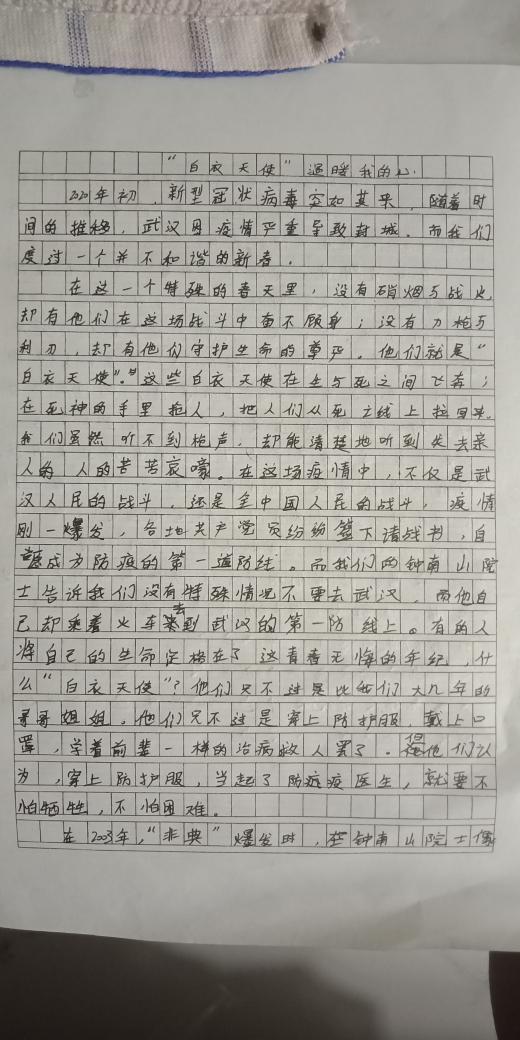 “白衣天使”温暖我的心.
2020年初,新型冠状病毒突如其来,随着时
间的推移,武汉因疫情严重导致封城。而我们
度过一个并不和谐的新春。
在这一个特殊的春天里,没有硝烟与战火,
却有他们在这场战斗中奋不顾身;没有刀枪与
利刃,却有他们守护生命的尊严。他们就是“
白衣天使”。这些白衣天使在生与死之间飞奔;
在死神的手里抢人,把人们从死亡线上拉回来,
我们虽然听不到枪声,却能清楚地听到失去亲
人的人的苦苦哀嚎。在这场疫情中,不仅是武
汉人民的战斗,还是全中国人民的战斗,疫情
刚一爆发,各地共产党员纷纷签下请战书,自
愿成为防疫的第一道防线。而我们的钟南山院
士告诉我们没有特殊情况不要去武汉,而他自
己却乘着火车去到武汉的第一防线上。有的人
将自己的生命定格在了这青春无悔的年纪,什
么“白衣天使”?他们只不过是比我们大几年的
哥哥姐姐。他们只不过是穿上防护服,戴上口
罩,学着前辈一样的治病救人罢了。但他们认
为,穿上防护服,当起了防疫医生,就要不
怕牺牲,不怕困难。
在2003年,“非典”爆发时,钟南山院士